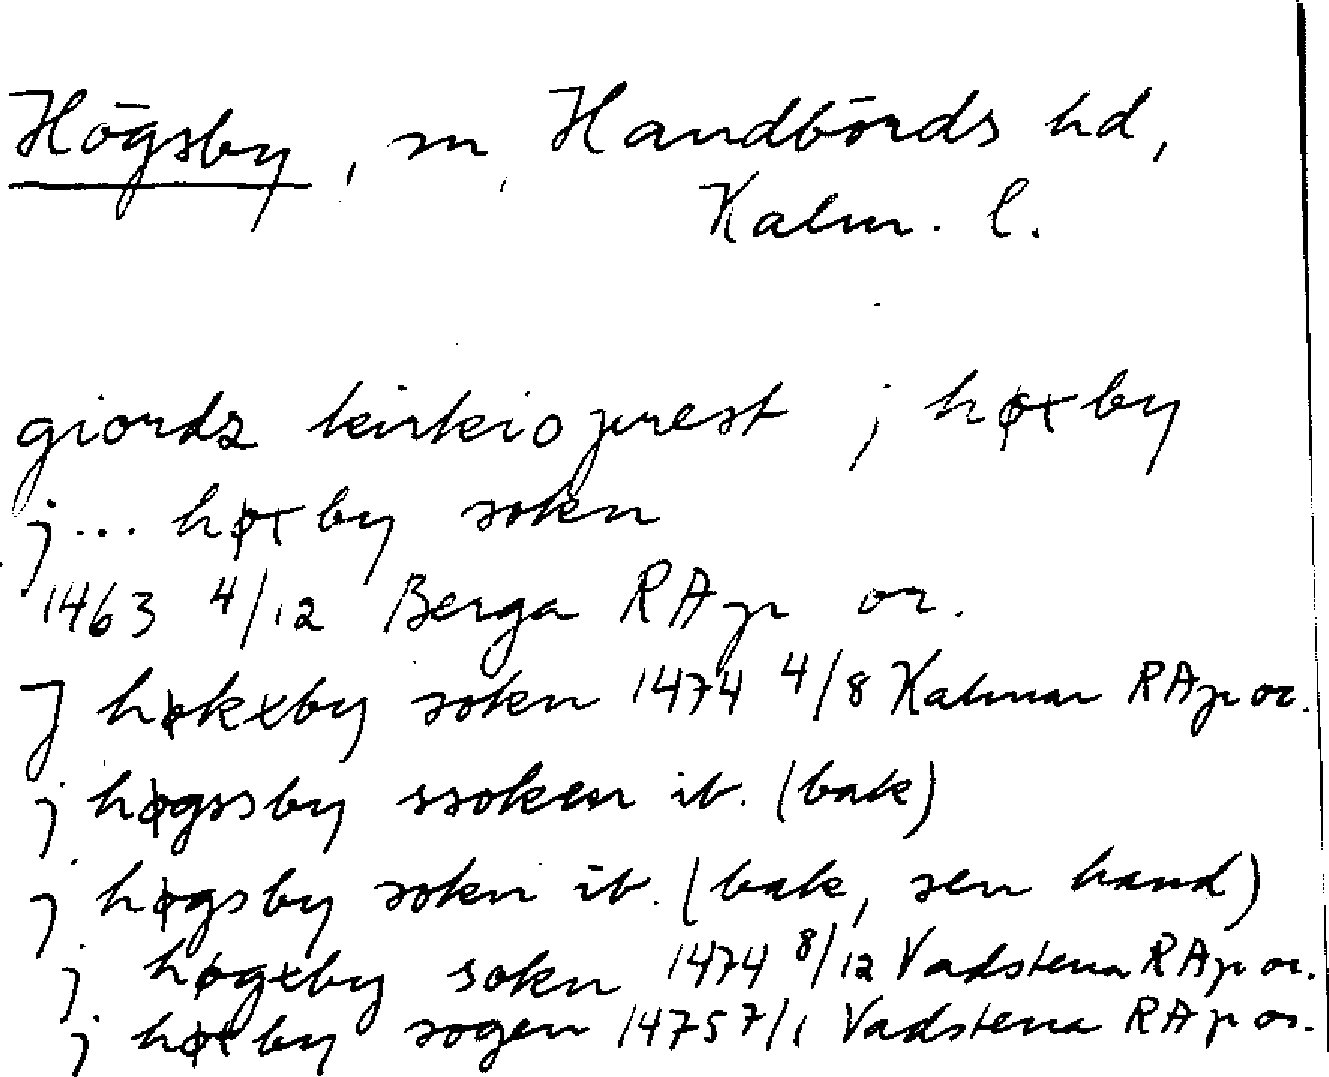 Högsby, sn, Handbörds hd,
Kalm. l.
giordz kirkio prest j høxby
j... høxby sokn
1463 4/12 Berga RAp or.
J høkxby sokn 1474 4/8 Kalmar RAp or.
j høgssby ssoken ib. (bak)
j høgsby sokn ib. (bak, sen hand)
j høgxby sokn 1474 8/12 Vadstena RAp or.
j høxby sogen 1475 7/1 Vadstena RAp or.